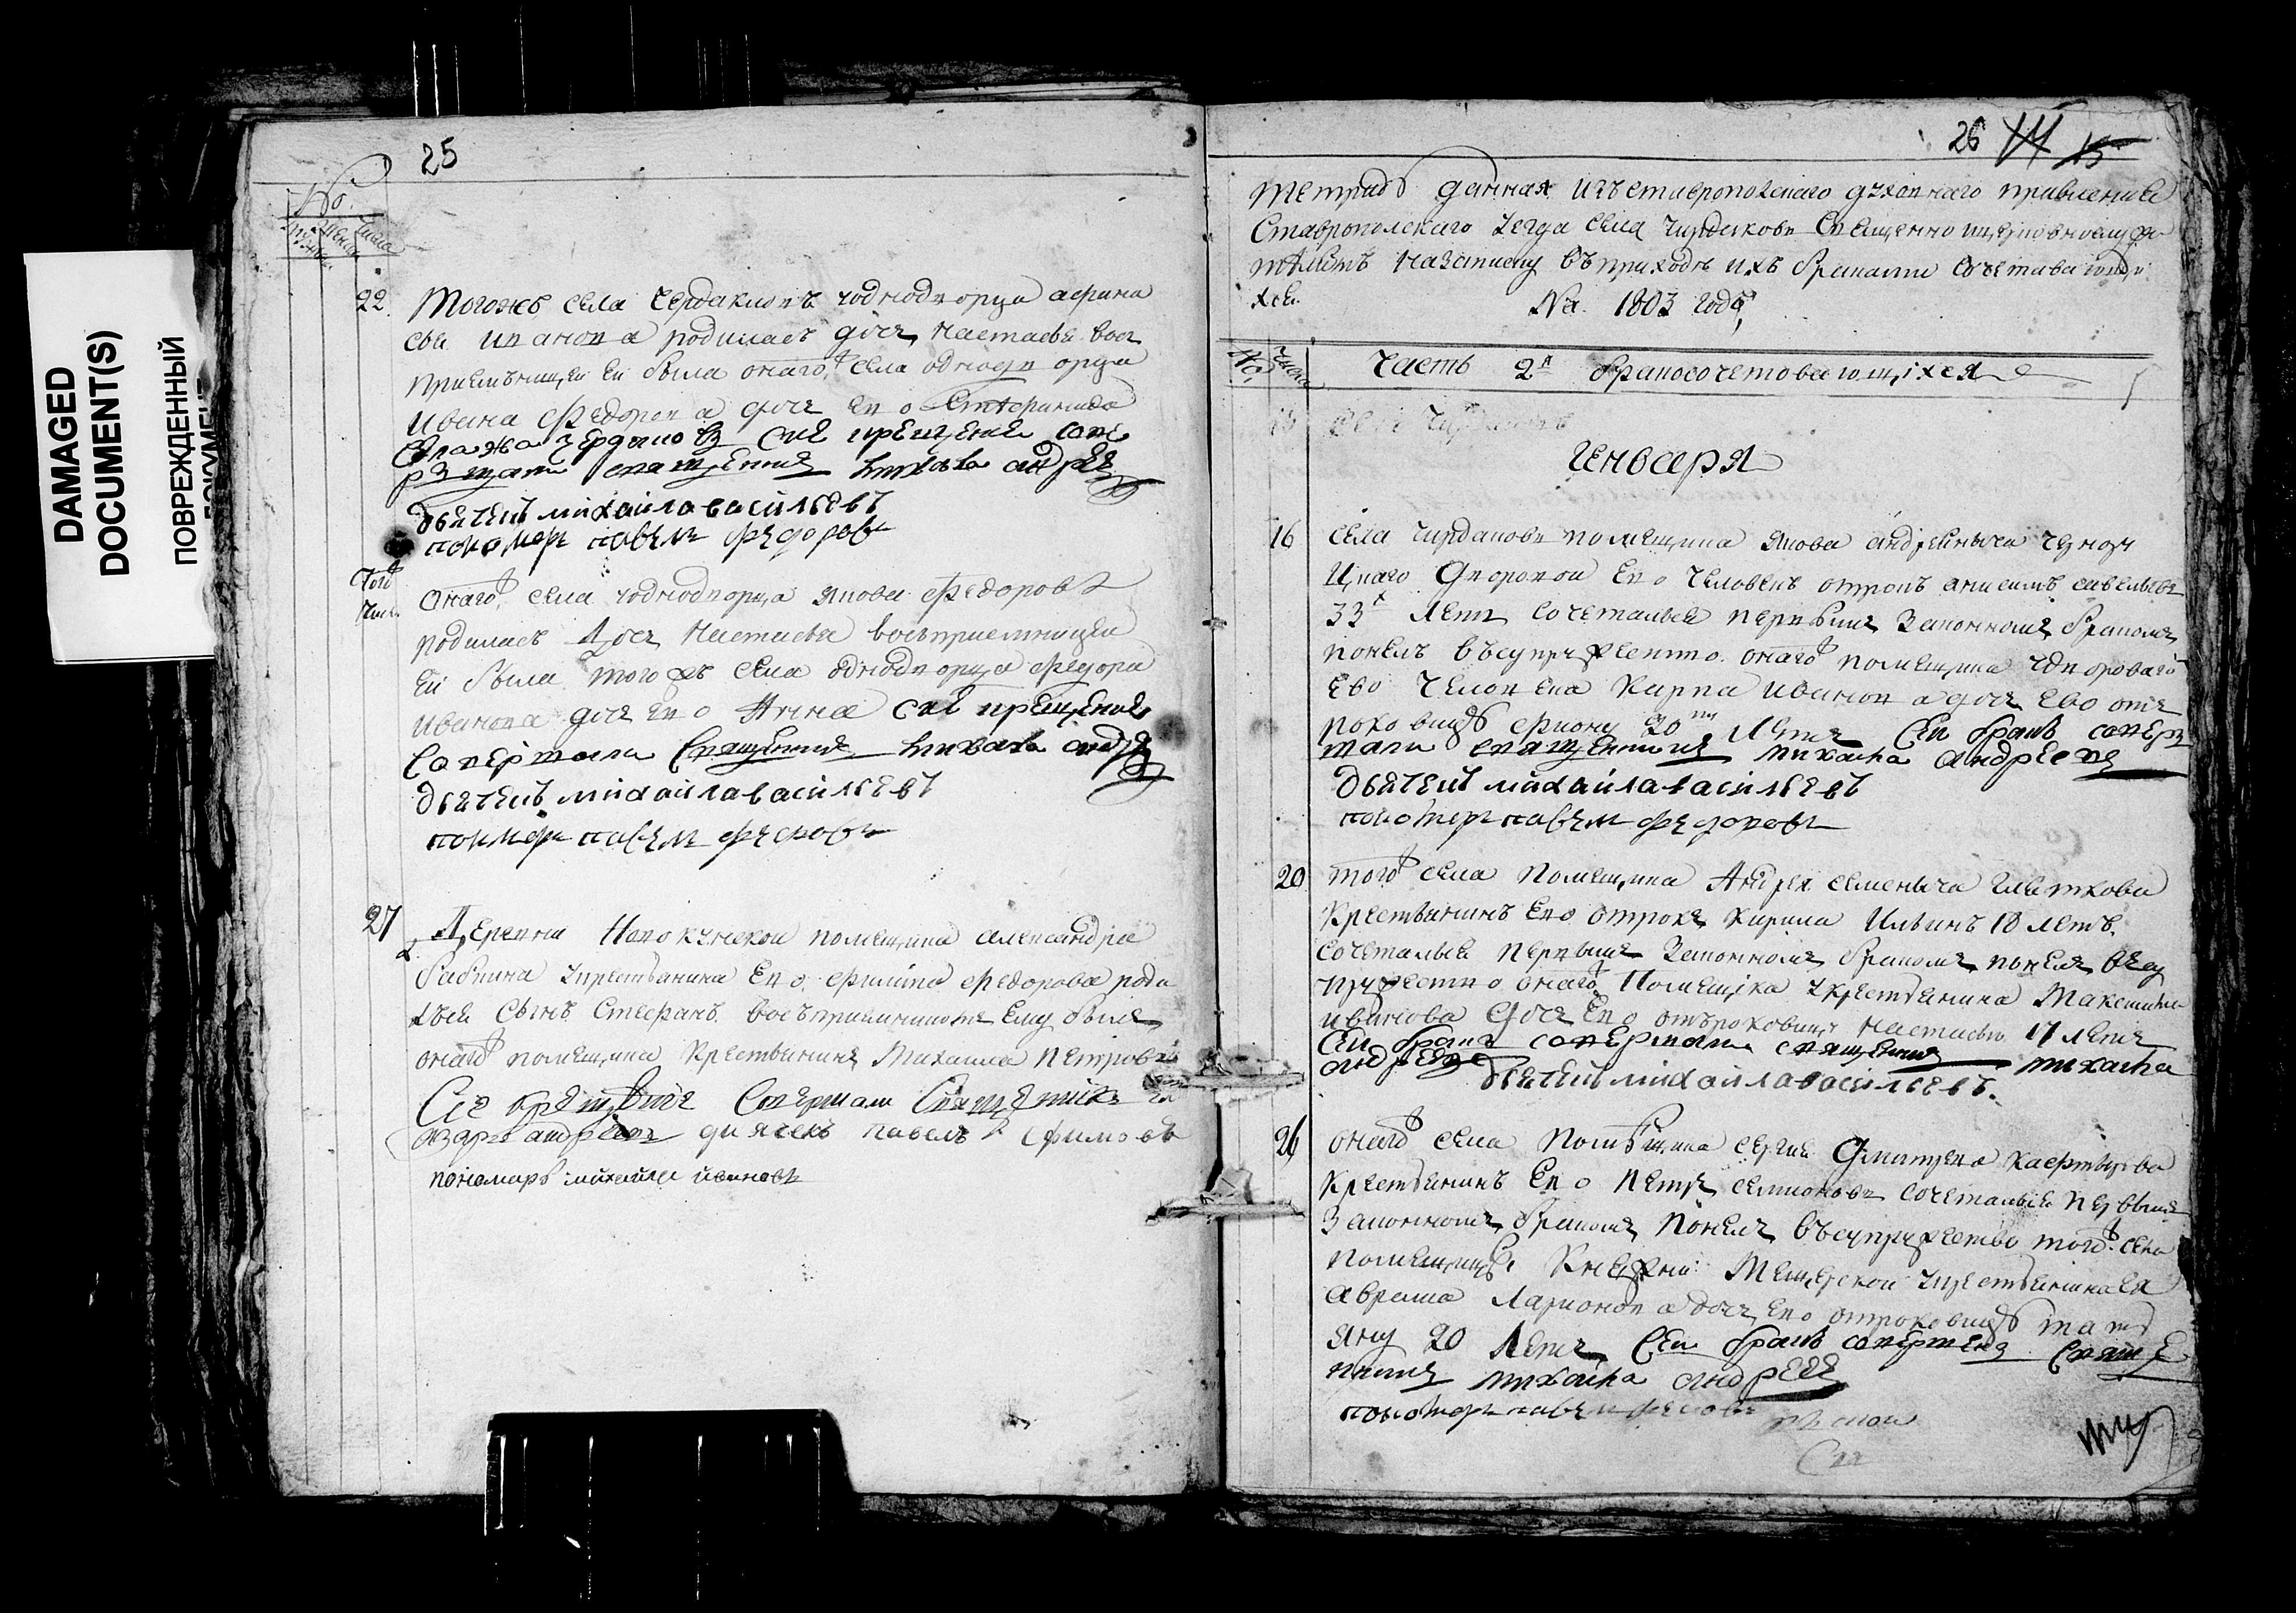 DAMAGED
DOCUMENT(S)
ПОВРЕЖДЕННЫЙ
ДОКУМЕНТ
25
No.
числа
22
Тогожъ села Чердакловъ уоднодворца афона
сья Иванова родилась дочь Настасья вос
приемницей ей была онаго села однодворца
Ивана Федорова дочь ево Катерина
села Чердаклов сие крещение сове
ршали священник Михаила Андрее
дьячекъ михайла васильевъ
пономарь павелъ федоровъ
Того
числ.
Онаго села уоднодворца Якова Федорова
родилась дочь Настасья восъприемницей
ей была тогожъ села однодворца Федора
Иванова дочь ево Анна сие крещение
совершали священник Михаила Андре
дьячекъ михайла васильевъ
пономарь павелъ федоровъ
27
Деревни помещика александра
укрестьянина ево филипа федорова роди
лъся сынъ Стефанъ восъприемником ему был
онаго помещика крестьянинъ Михаила Петровъ
Сие крещение совершали священникъ
андреевъ дьячекъ павелъ Ефимовъ
пономарь михайла ивановъ
26 15
Тетрадь данная изъ ставропольскаго духовнаго правления
Ставропольскаго уезда села Чирдаковъ Священно и церковнослужи
телямъ назаписку въприходъ ихъ браками сочетавающи
хся.
На 1803 годъ
No. числа
Часть 2я бракосочетовающихся
Генваря
16
села Чирдаковъ помещика Якова андреяныча
дворовой ево человекъ отрокъ анисимъ савельевъ
33х летъ сочетался первымъ законнымъ бракомъ
понелъ въсупружество онаго помещика удвороваго
ево человека Карпа Иванова дочь ево отъ
роковицу 20ти летъ Сей бракъ соверш
шали священникъ михаила Андреевъ
дьячекъ михайла васильевъ
пономарь павелъ федоровъ
20
того села Помещика Андрея семеныча
крестьянинъ ево отрокъ Кирила Ильинъ 18 летъ.
сочетался первымъ законнымъ бракомъ понелъ въсу
пружество онаго Помещика укрестьянина Максима
иванова дочь ево отъроковицу настасью 17 летъ
Сей бракъ совершали священникъ михаила
андреевъ
дьячекъ михайла васильевъ.
26
онаго села помещика сергия Дмитрева
крестьянинъ ево Петръ семионовъ сочетался первымъ
законнымъ бракомъ понелъ въсупружество того села
помещицы Княжны Мещерской укрестьянина ея
аврама Ларионова дочь ево отроковицу тать
яну 20 летъ Сей бракъ совершенъ свяще
нникъ михаила андрее
пономарь павелъ федоровъ